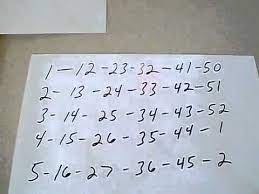 1-12-23-32-41-50
2-13-24-33-42-51
3-14-25-34-43-52
4-15-26-35-44-1
5-16-27-36-45-2